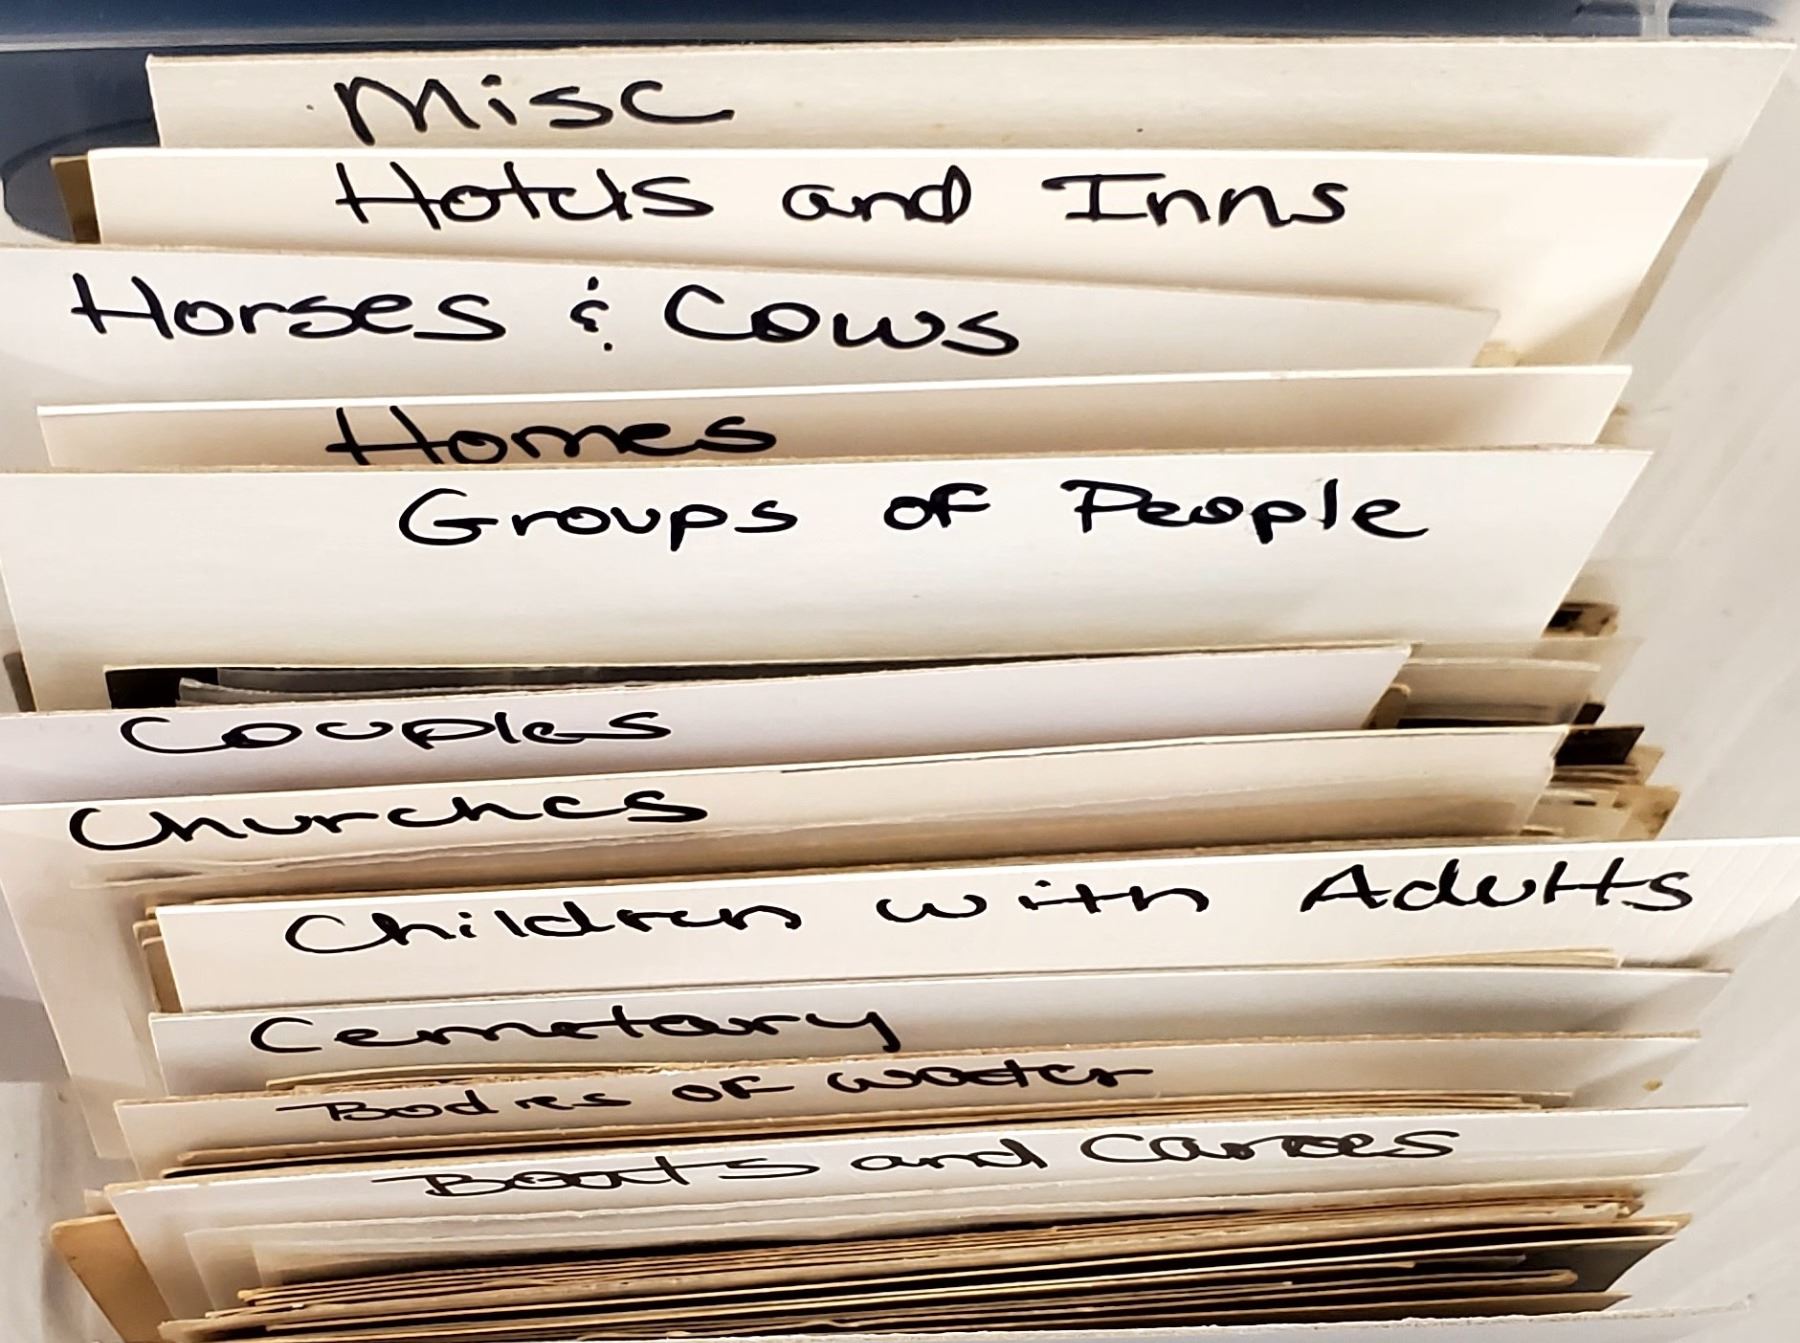 Misc
Hotels and Inns
Horses & Cows
Homes
Groups of People
Couples
Churches
Children with Adults
Cemetary
Bodies of Water
Boats and Canoes